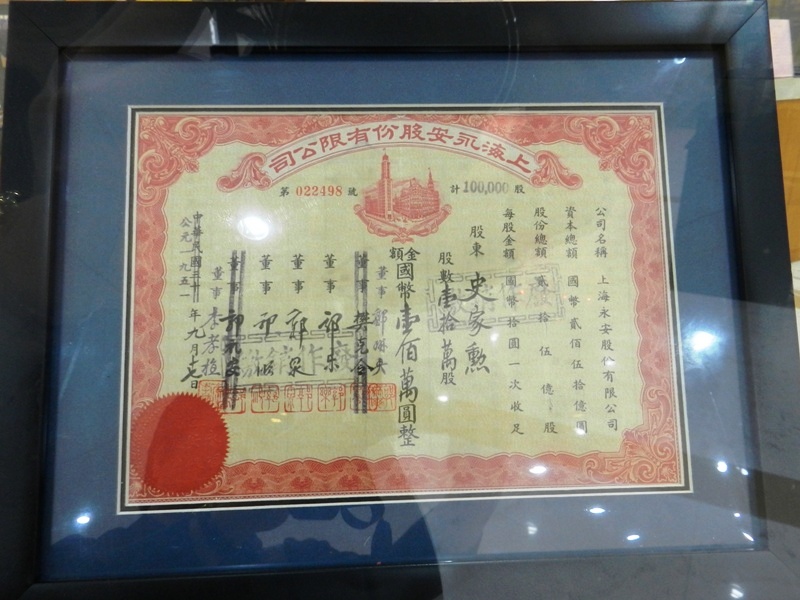 上海永安股份有限公司
第 022498 號
計 100,000 股
公司名稱 上海永安股份有限公司
資本總額 國幣貳佰伍拾億圓
股份總額 貳拾伍億股
每股金額 國幣拾圓一次收足
股東 史家勲
股數壹拾萬股
金額國幣壹佰萬圓整
董事
董事
董事
董事
董事
董事
董事
中華民國三十
公元一九五一年九月十七日